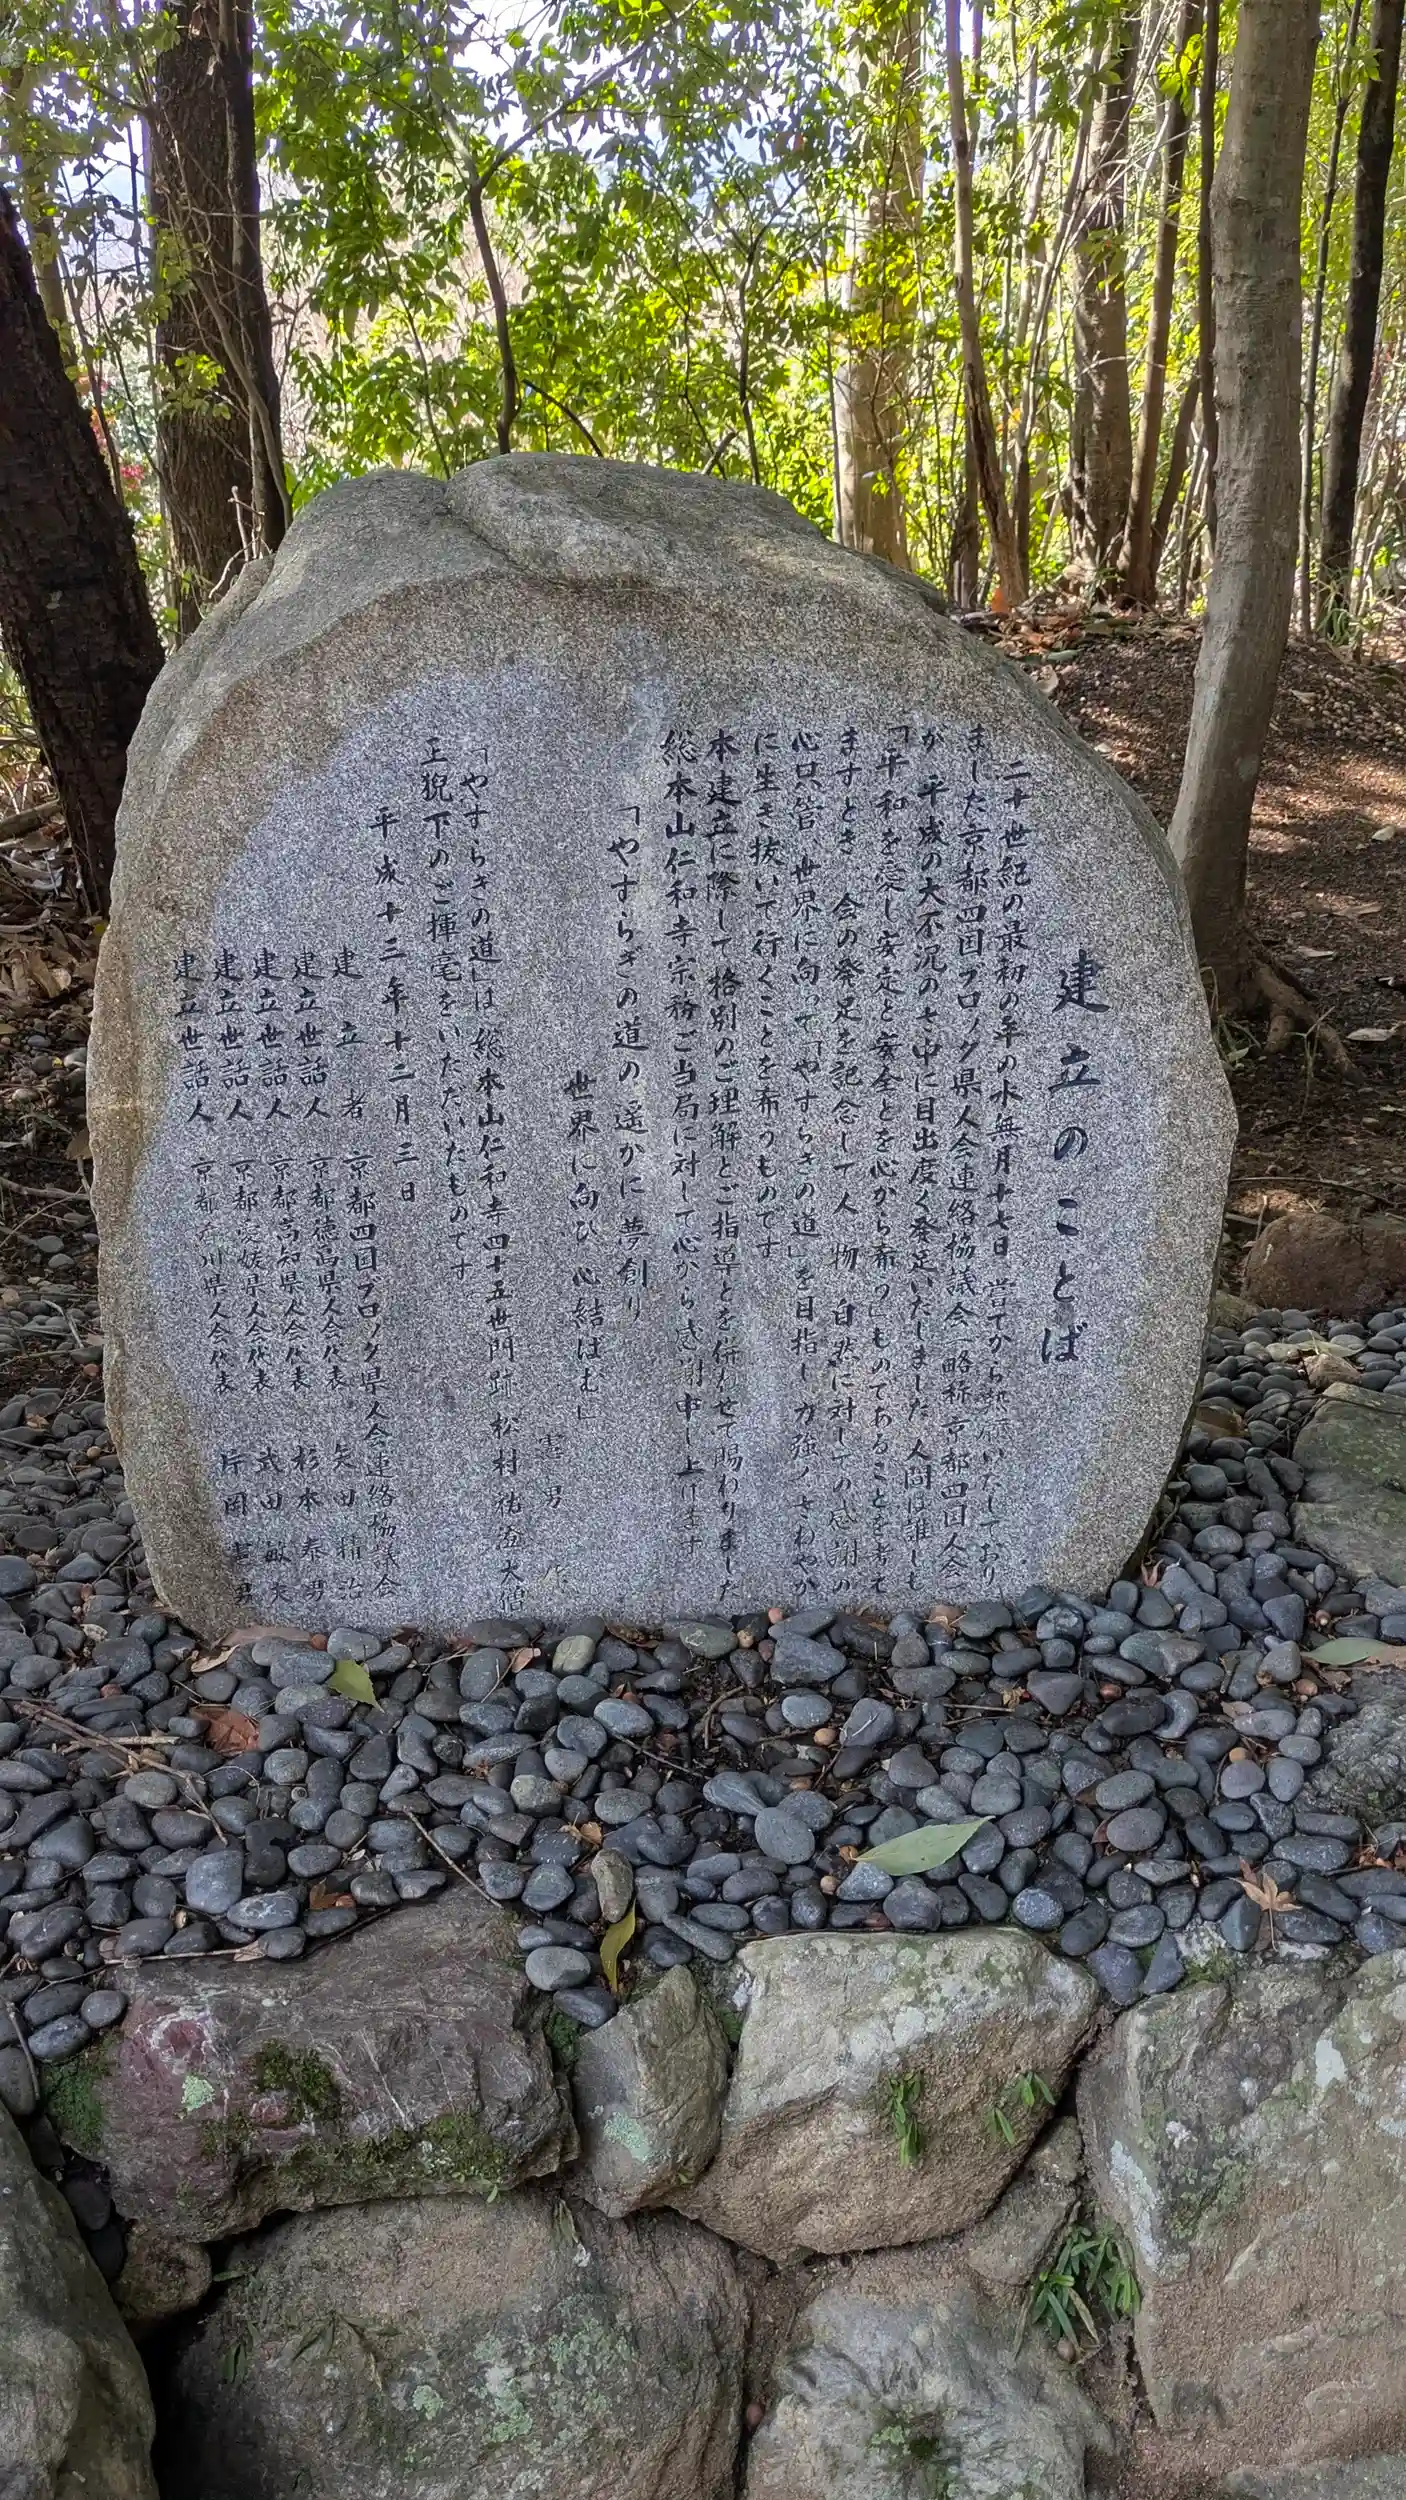 建立のことば
二十世紀の最初の年の水無月十七日 嘗てから熱願いたしており
ました京都四国ブロック県人会連絡協議会(略称京都四国人会)
が 平成の大不況のさ中に目出度く発足いたしました 人間は誰しも
「平和を愛し安定と安全とを心から希う」ものであることを考て
ますとき 会の発足を記念して人 物 自然に対しての感謝の
心只管、世界に向って「やすらぎの道」を目指し 力強くさわやか
に生き抜いて行くことを希うものです
本建立に際して格別のご理解とご指導とを併わせて賜わりました
総本山仁和寺宗務ご当局に対して心から感謝申し上げます
「やすらぎの道の遥かに夢創り
世界に向ひ心結ばむ」
憲男 作
「やすらぎの道」は総本山仁和寺四十五世門跡 松村祐澄大僧
正猊下のご揮毫をいただいたものです
平成十三年十二月三日
建立者 京都四国ブロック県人会連絡協議会
建立世話人 京都徳島県人会代表 矢田精治
建立世話人 京都高知県人会代表 杉本泰男
建立世話人 京都愛媛県人会代表 武田敏夫
建立世話人 京都香川県人会代表 片岡憲男